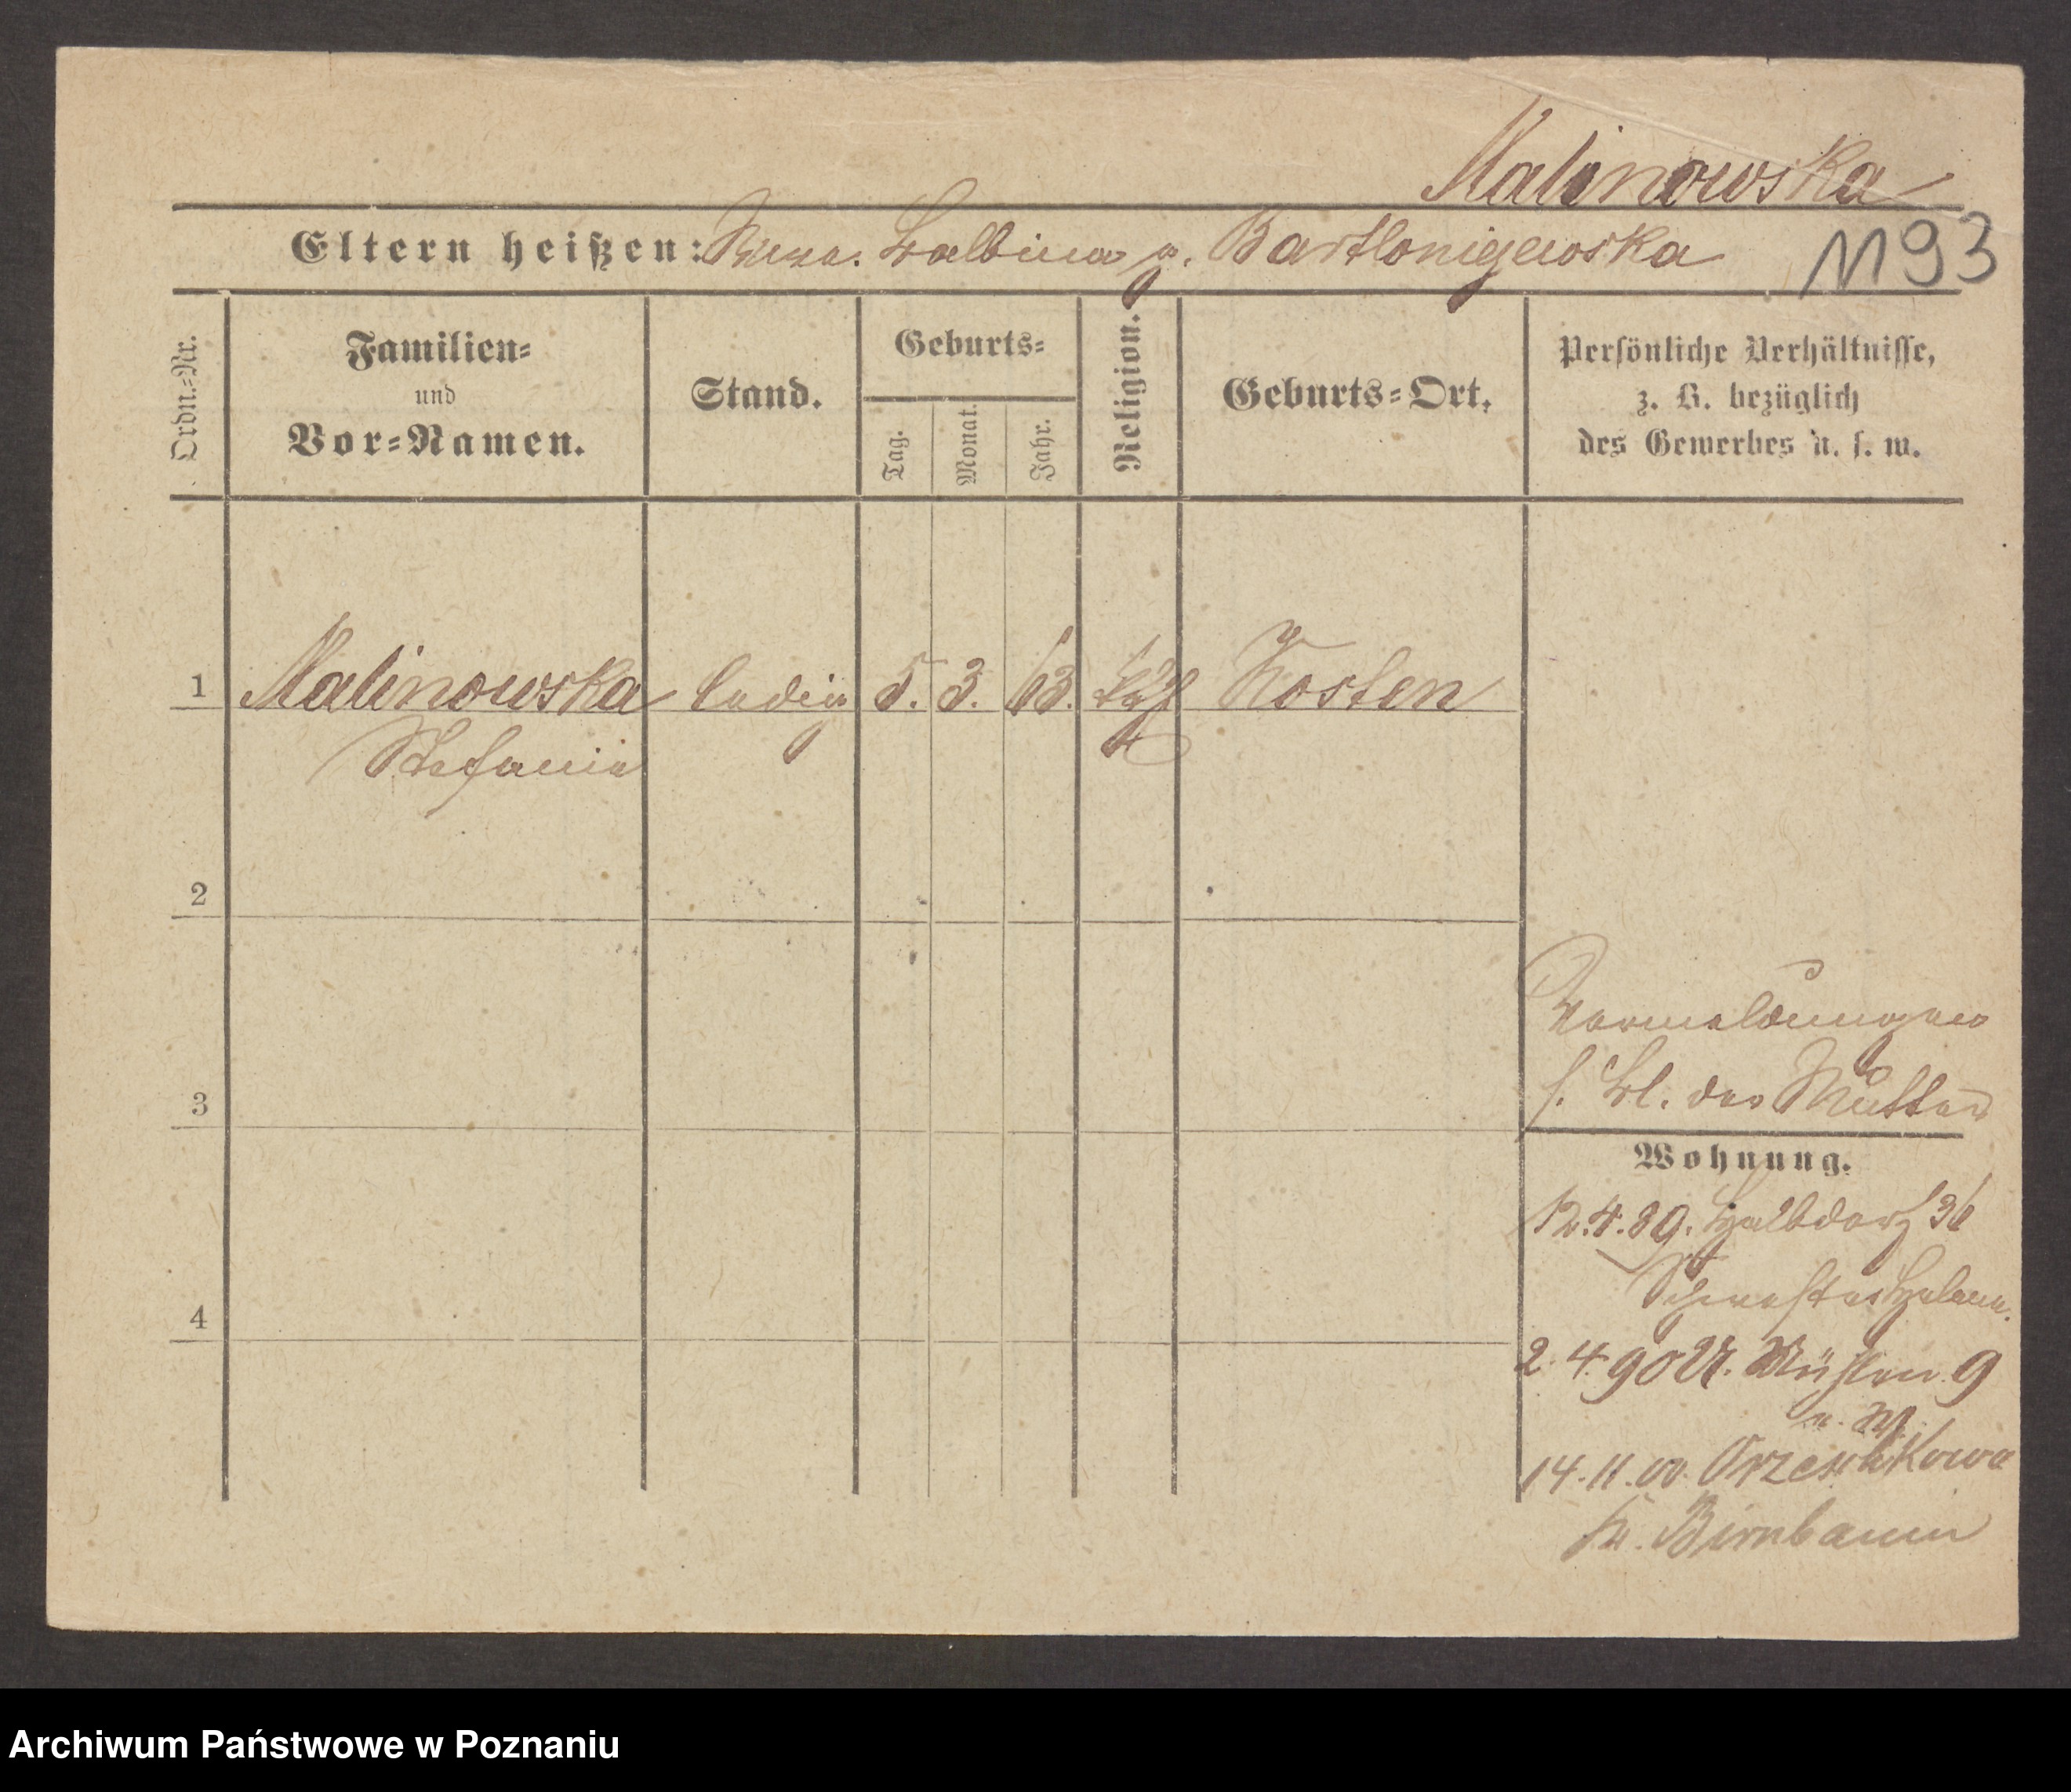 Malinowska
Eltern heißen: Balbina g. Bartlomigewska
M93
Ordn.=Nr.
Familien= und Vor=Namen.
Stand.
Geburts=
Tag.
Monat.
Jahr.
Religion.
Geburts=Ort.
Persönliche Verhältnisse,
z. B. bezüglich
des Gewerbes u. s. w.
1 Malinowska ledig 5. 3. 63. kath Kosten
Stefania
2
3
4
Vormeldungen
s. Bl. der Mutter
Wohnung.
12.4.89. Halbdorf 36
Schwester Helene.
2.4.90 U. Mühlen 9
14.11.00. Orzeschkowo
Kr. Birnbaum
Archiwum Państwowe w Poznaniu